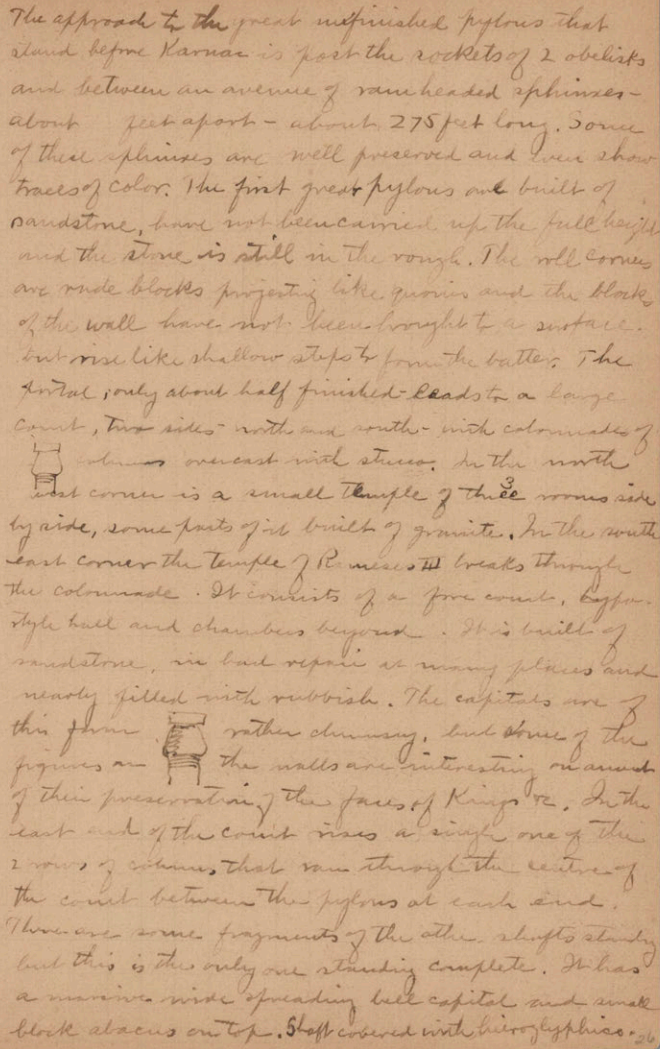 The approach to the great unfinished pylons that
stand before Karnac is past the sockets of 2 obelisks
and between an avenue of ram headed sphinxes -
about feet apart - about 275 feet long. Some
of these sphinxes are well preserved and even show
traces of color. The first great pylons are built of
sandstone, have not been carried up the full height
and the stone is still in the rough. The roll corners
are rude blocks projecting like quoins and the blocks
of the wall have not been brought to a surface.
but rise like shallow steps to form the batter. The
portal, only about half finished - leads to a large
court, two sides - north and south - with colonnades of
columns overcast with stucco. In the north
west corner is a small temple of three 3 rooms side
by side, some parts of it built of granite. In the south
east corner the temple of Rameses III breaks through
the colonnade. It consists of a fore court, hypo-
style hall and chambers beyond. It is built of
sandstone, in bad repair at many places and
nearly filled with rubbish. The capitals are of
this form rather clumsy, but some of the
figures on the walls are interesting on account
of their preservation of the faces of Kings &c. In the
east end of the court rises a single one of the
2 rows of columns that ran through the centre of
the court between the pylons at each end.
There are some fragments of the other shafts standing
but this is the only one standing complete. It has
a massive wide spreading bell capital and small
block abacus on top. Shaft covered with hieroglyphics.
26